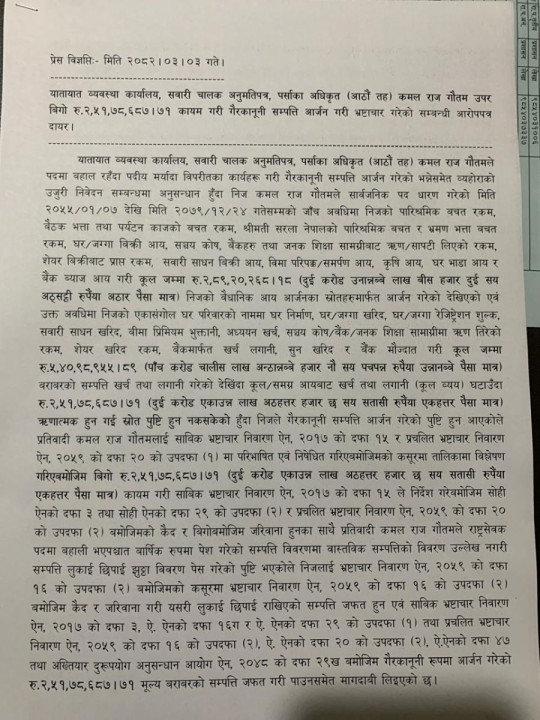 प्रेस विज्ञप्तिः- मिति २०८२।०३।०३ गते।
यातायात व्यवस्था कार्यालय, सवारी चालक अनुमतिपत्र, पर्साका अधिकृत (आठौं तह) कमल राज गौतम उपर
बिगो रु.२,५१,७८,६८७।७१ कायम गरी गैरकानूनी सम्पत्ति आर्जन गरी भ्रष्टाचार गरेको सम्बन्धी आरोपपत्र
दायर।
यातायात व्यवस्था कार्यालय, सवारी चालक अनुमतिपत्र, पर्साका अधिकृत (आठौं तह) कमल राज गौतमले
पदमा बहाल रहँदा पदीय मर्यादा विपरीतका कार्यहरू गरी गैरकानूनी सम्पत्ति आर्जन गरेको भन्नेसमेत व्यहोराको
उजुरी निवेदन सम्बन्धमा अनुसन्धान हुँदा निज कमल राज गौतमले सार्वजनिक पद धारण गरेको मिति
२०५५/०१/०७ देखि मिति २०७९/१२/२४ गतेसम्मको जाँच अवधिमा निजको पारिश्रमिक बचत रकम,
बैठक भत्ता तथा पर्यटन काजको बचत रकम, श्रीमती सरला नेपालको पारिश्रमिक बचत र भ्रमण भत्ता बचत
रकम, घर/जग्गा बिक्री आय, सञ्चय कोष, बैंकहरु तथा जनक शिक्षा सामग्रीबाट ऋण/सापटी लिएको रकम,
शेयर बिक्रीबाट प्राप्त रकम, सवारी साधन बिक्री आय, विमा परिपक्व/समर्पण आय, कृषि आय, घर भाडा आय र
बैंक ब्याज आय गरी कूल जम्मा रु.२,८९,२०,२६८।१८ (दुई करोड उनान्नब्बे लाख बीस हजार दुई सय
अठ्सठ्ठी रुपैंया अठार पैसा मात्र) निजको वैधानिक आय आर्जनका स्रोतहरुमार्फत आर्जन गरेको देखिएको एवं
उक्त अवधिमा निजको एकासंगोल घर परिवारको नाममा घर निर्माण, घर/जग्गा खरिद, घर/जग्गा रेजिष्ट्रेशन शुल्क,
सवारी साधन खरिद, बीमा प्रिमियम भुक्तानी, अध्ययन खर्च, सञ्चय कोष/बैंक/जनक शिक्षा सामाग्रीमा ऋण तिरेको
रकम, शेयर खरिद रकम, बैंकमार्फत खर्च लगानी, सुन खरिद र बैंक मौज्दात गरी कूल जम्मा
रु.५,४०,९८,९५५।८९ (पाँच करोड चालीस लाख अन्ठान्नब्बे हजार नौ सय पचपन्न रुपैंया उन्नानब्बे पैसा मात्र)
बराबरको सम्पत्ति खर्च तथा लगानी गरेको देखिंदा कूल/समग्र आयबाट खर्च तथा लगानी (कूल व्यय) घटाउँदा
रु.२,५१,७८,६८७।७१ (दुई करोड एकाउन्न लाख अठहत्तर हजार छ सय सतासी रुपैंया एकहत्तर पैसा मात्र)
ऋणात्मक हुन गई स्रोत पुष्टि हुन नकसकेको हुँदा निजले गैरकानूनी सम्पत्ति आर्जन गरेको पुष्टि हुन आएकोले
प्रतिवादी कमल राज गौतमलाई साबिक भ्रष्टाचार निवारण ऐन, २०१७ को दफा १५ र प्रचलित भ्रष्टाचार निवारण
ऐन, २०५९ को दफा २० को उपदफा (१) मा परिभाषित एवं निषेधित गरिएबमोजिमको कसूरमा तालिकामा विश्लेषण
गरिएबमोजिम बिगो रु.२,५१,७८,६८७।७१ (दुई करोड एकाउन्न लाख अठहत्तर हजार छ सय सतासी रुपैंया
एकहत्तर पैसा मात्र) कायम गरी साबिक भ्रष्टाचार निवारण ऐन, २०१७ को दफा १५ ले निर्देश गरेबमोजिम सोही
ऐनको दफा ३ तथा सोही ऐनको दफा २९ को उपदफा (२) र प्रचलित भ्रष्टाचार निवारण ऐन, २०५९ को दफा २०
को उपदफा (२) बमोजिमको कैद र बिगोबमोजिम जरिवाना हुनका साथै प्रतिवादी कमल राज गौतमले राष्ट्रसेवक
पदमा बहाली भएपश्चात बार्षिक रुपमा पेश गरेको सम्पत्ति विवरणमा वास्तविक सम्पत्तिको विवरण उल्लेख नगरी
सम्पत्ति लुकाई छिपाई झुठ्ठा विवरण पेस गरेको पुष्टि भएकोले निजलाई भ्रष्टाचार निवारण ऐन, २०५९ को दफा
१६ को उपदफा (२) बमोजिमको कसूरमा भ्रष्टाचार निवारण ऐन, २०५९ को दफा १६ को उपदफा (२)
बमोजिम कैद र जरिवाना गरी यसरी लुकाई छिपाई राखिएको सम्पत्ति जफत हुन एवं साबिक भ्रष्टाचार निवारण
ऐन, २०१७ को दफा ३, ऐ. ऐनको दफा १६ग र ऐ. ऐनको दफा २९ को उपदफा (१) तथा प्रचलित भ्रष्टाचार
निवारण ऐन, २०५९ को दफा १६ को उपदफा (२), ऐ. ऐनको दफा २० को उपदफा (२), ऐ.ऐनको दफा ४७
तथा अख्तियार दुरूपयोग अनुसन्धान आयोग ऐन, २०४८ को दफा २९ख बमोजिम गैरकानूनी रूपमा आर्जन गरेको
रु.२,५१,७८,६८७।७१ मूल्य बराबरको सम्पत्ति जफत गरी पाउनसमेत मागदाबी लिइएको छ।